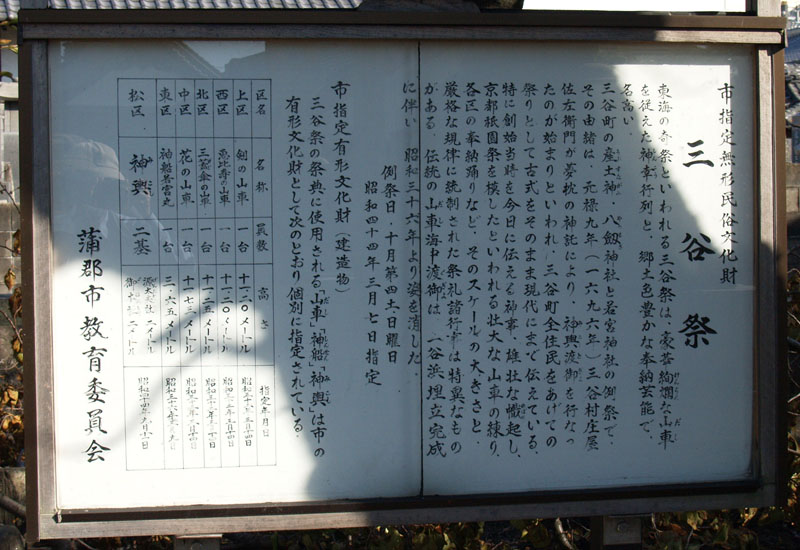 市指定無形民俗文化財
三谷祭
東海の奇祭といわれる三谷祭は、豪華絢爛な山車
を従えた神幸行列と、郷土色豊かな奉納芸能で、
名高い
三谷町の産土神・八劔神社と若宮神社の例祭で、
その由緒は、元禄九年(一六九六年)三谷村庄屋
佐左衛門が夢枕の神託により、神輿渡御を行なっ
たのが始まりといわれ、三谷町全住民をあげての
祭りとして古式をそのまま現代にまで伝えている。
特に創始当時を今日に伝える神事、雄壮な幟起し、
京都祇園祭を模したといわれる壮大な山車の練り、
各区の奉納踊りなど、そのスケールの大きさと
厳格な規律に統制された祭礼諸行事は特異なもの
がある。伝統の山車海中渡御は、一谷浜埋立完成
に伴い、昭和三十六年より姿を消した
例祭日・十月第四土・日曜日
昭和四十四年三月七日指定
市指定有形文化財(建造物)
三谷祭の祭典に使用される「山車」「神船」「神輿」は市の
有形文化財として次のとおり個別に指定されている。
区名 名称 員数 高さ 指定年月日
上区 劔の山車 一台 十一・二〇メートル
西区 恵比寿の山車 一台 十一・二〇メートル
北区 三蓋傘の山車 一台 十一・二五メートル
中区 花の山車 一台 十一・七三メートル
東区 神船 一台 三・六五メートル
松区 神輿 二基 メートル
蒲郡市教育委員会